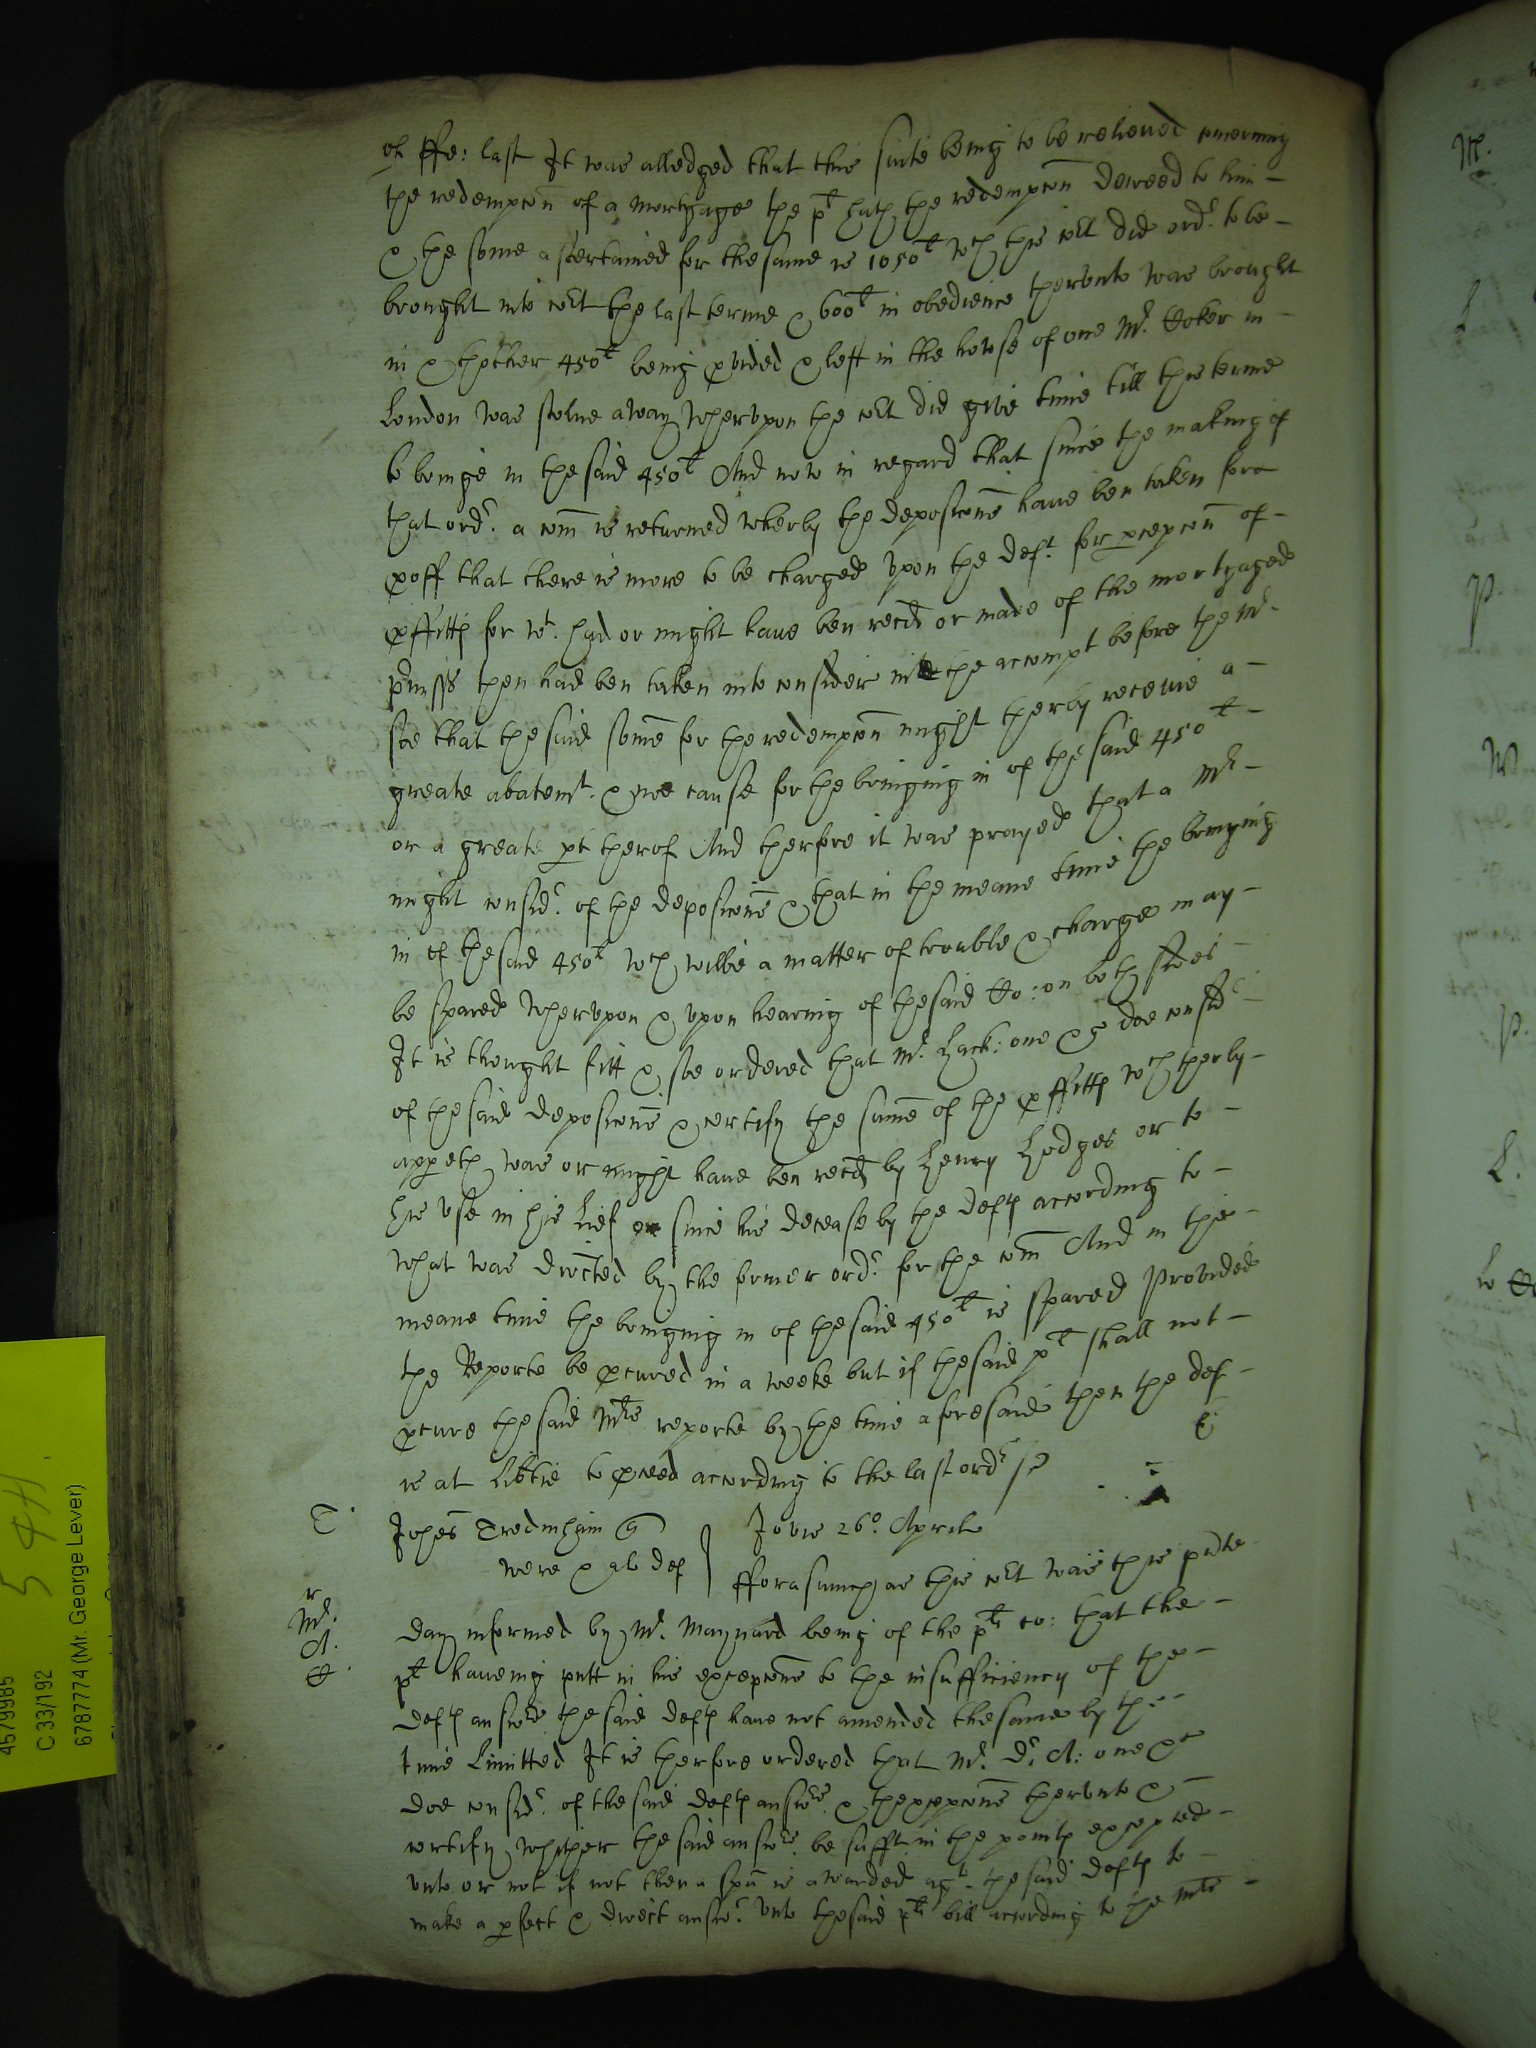 of ffe: last It was alledged that this suite being to be releived concerning
the redempcon of a mortgage the plt hath the redempcon decreed to him
& the some ascertained for the same is 1050l wch this cort did ordr. to be
brought into cort the last terme & 600l in obedience therunto was brought
in & thother 450l being pvided & left in the howse of one Mr. Coker in
London was stolne away Wherupon the cort did give time till this terme
to bringe in the said 450l And now in regard that since the making of
that ordr. a com is returned wherby the deposicons have ben taken for a
proff that there is more to be charged upon the deft. for pcepcon of
pffitts for wt. had or might have ben recd or made of the mortgaged
pmisss then had ben taken into consider in the accompt before the Mr.
soe that the said some for the redempcon might therby receive a
greate abatemt. & noe cause for the bringing in of the said 450l
or a greate pt therof And therfore it was prayed that a Mr
might considr. of the deposicons & that in the meane time the bringing
in of the said 450l wch wilbe a matter of trouble & charge may
be spared Wherupon & upon hearing of the said Co: on both sides
It is thought fitt & soe ordered that Mr. Hack: one &c doe considr
of the said deposicons & certify the same of the pffitts wch therby
appeth was or might have ben recd by Henry Hodges or to
his use in his Lief or since his decease by the defts according to
what was directed by the former ordr. for the com And in the
meane time the bringing in of the said 450l is spared Provided
the Reporte be pcured in a weeke but if the said plt shall not
pcure the said Mrs reporte by the time aforesaid then the def
is at libtie to pceed according to the last ordr
T. Johes Tredinham
Jovis 26o. Aprilis
were & al def
fforasmuch as this cort was this pnte
r
Mr.
A.
C.
day informed by Mr. Maynard being of the plts co: that the
plt haveing putt in his excepcons to the insufficiency of the
defts answre the said defts have not amended the same by the
time limitted It is therfore ordered that Mr. Dr. A: one &c
doe considr. of the said defts answre. & thexcepcons therunto &
certify whether the said answre. be sufft. in the points excepted
unto or not if not then a spa is awarded agt. the said defts to
make a pfect & direct answr. unto the said plts bill according to the Mrs
4579985
C 33/192
6787774 (Mr. George Lever)